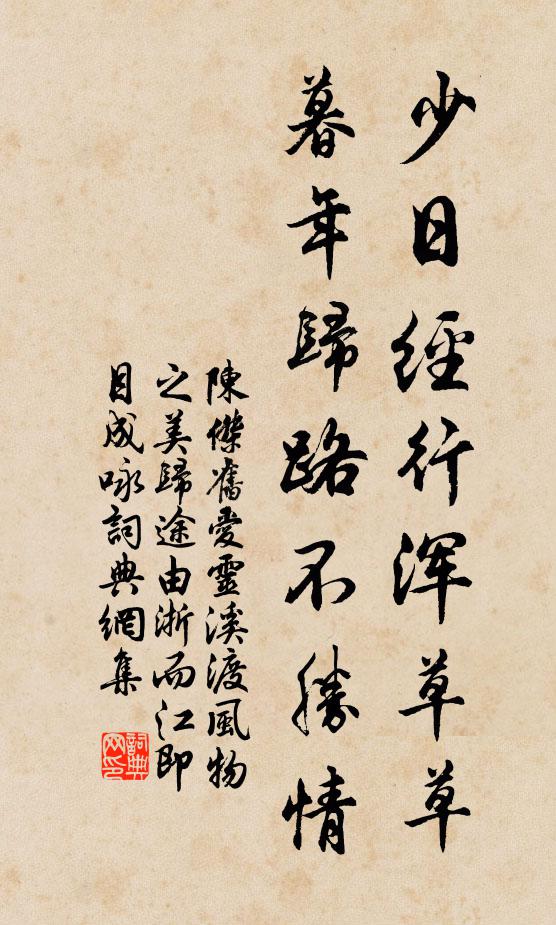 少日經行浑草草
暮年歸路不勝情
陳傑舊愛靈溪渡風物
之美歸途由浙而江即
目成咏詞典網集
詞典网印